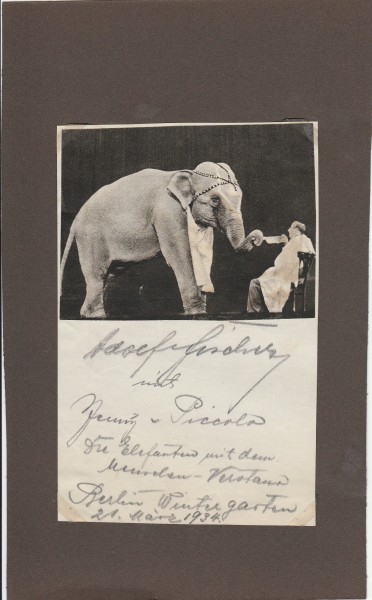 Adolf Fischer
mit
Jenny u Piccolo
Die Elefanten mit dem
Menschen-Verstand
Berlin Wintergarten
21. März 1934.